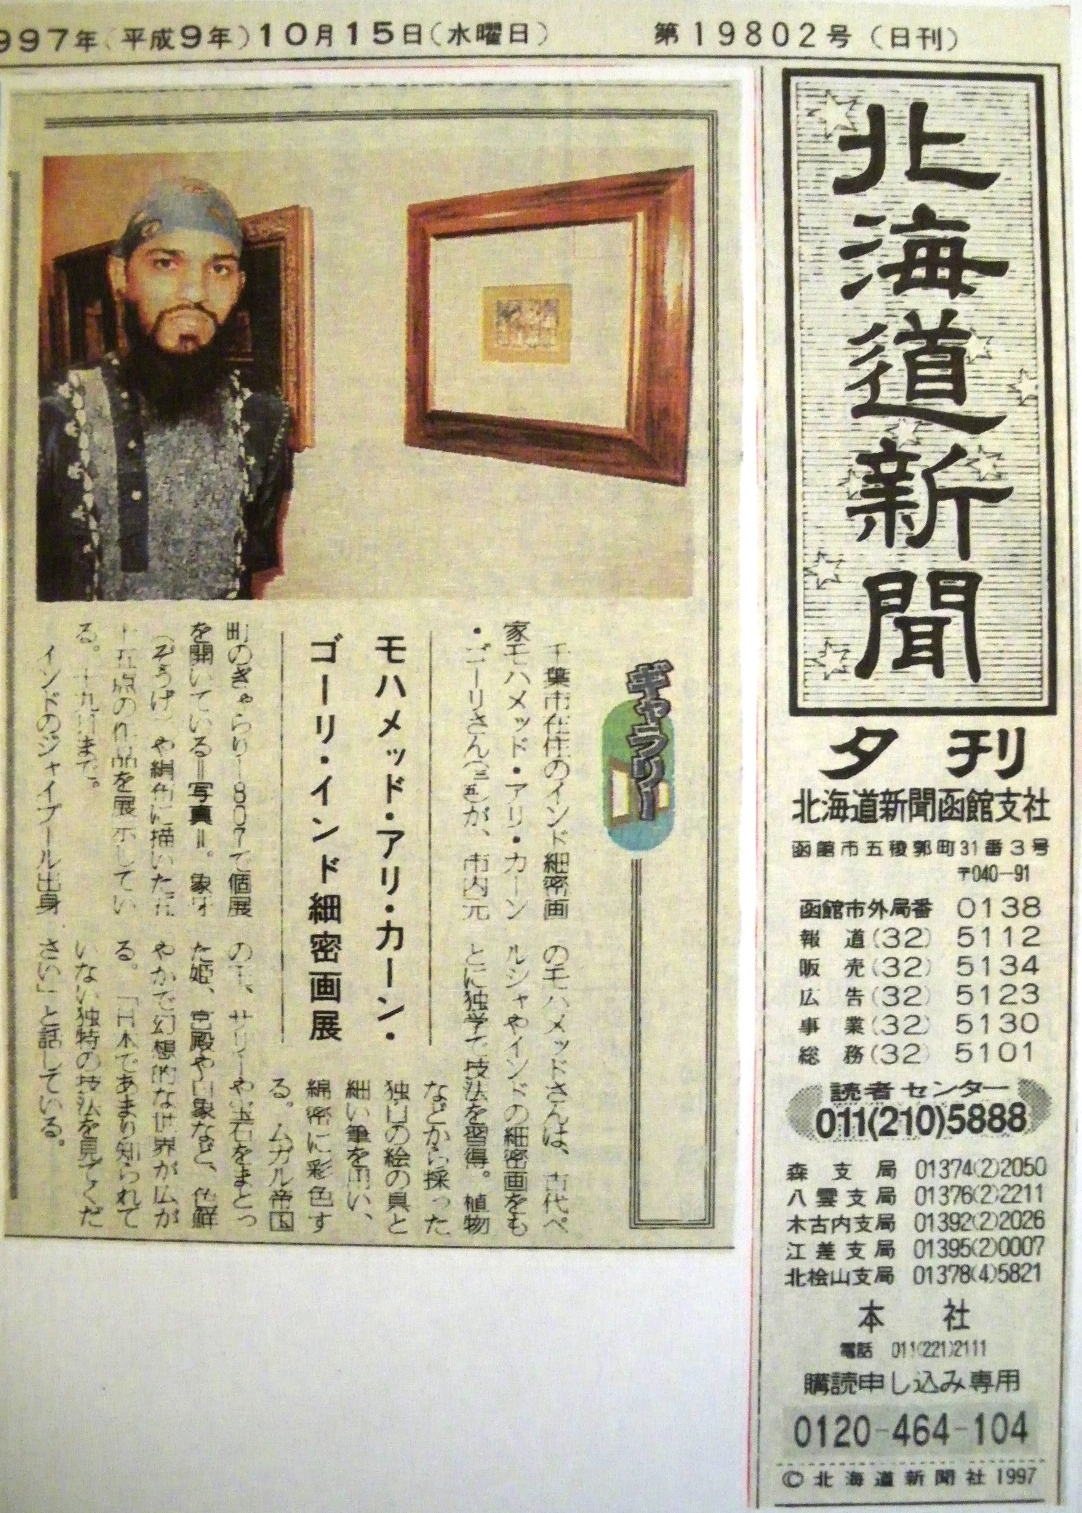 997年(平成9年)10月15日(水曜日)
第19802号(日刊)
北海道新聞
夕刊
北海道新聞函館支社
函館市五稜郭町31番3号
〒040-91
函館市外局番 0138
報道(32) 5112
販売(32) 5134
広告(32) 5123
事業(32) 5130
総務(32) 5101
読者センター
011(210)5888
森支局 01374(2)2050
八雲支局 01376(2)2211
木古内支局 01392(2)2026
江差支局 01395(2)0007
北桧山支局 01378(4)5821
本社
電話 011(221)2111
購読申し込み専用
0120-464-104
©北海道新聞社 1997
ギャラリー
モハメッド・アリ・カーン・
ゴーリ・インド細密画展
千葉市在住のインド細密画
家モハメッド・アリ・カーン
・ゴーリさん(三五)が、市内元
町のぎゃらりー807で個展
を開いている=写真=。象牙
(ぞうげ)や絹布に描いた五
十五点の作品を展示してい
る。十九日まで。
インドのジャイプール出身
のモハメッドさんは、古代ペ
ルシャやインドの細密画をも
とに独学で技法を習得。植物
などから採った
独自の絵の具と
細い筆を用い、
綿密に彩色す
る。ムガル帝国
の王、サリーや宝石をまとっ
た姫、宮殿や白象など、色鮮
やかで幻想的な世界が広が
る。「日本であまり知られて
いない独特の技法を見てくだ
さい」と話している。